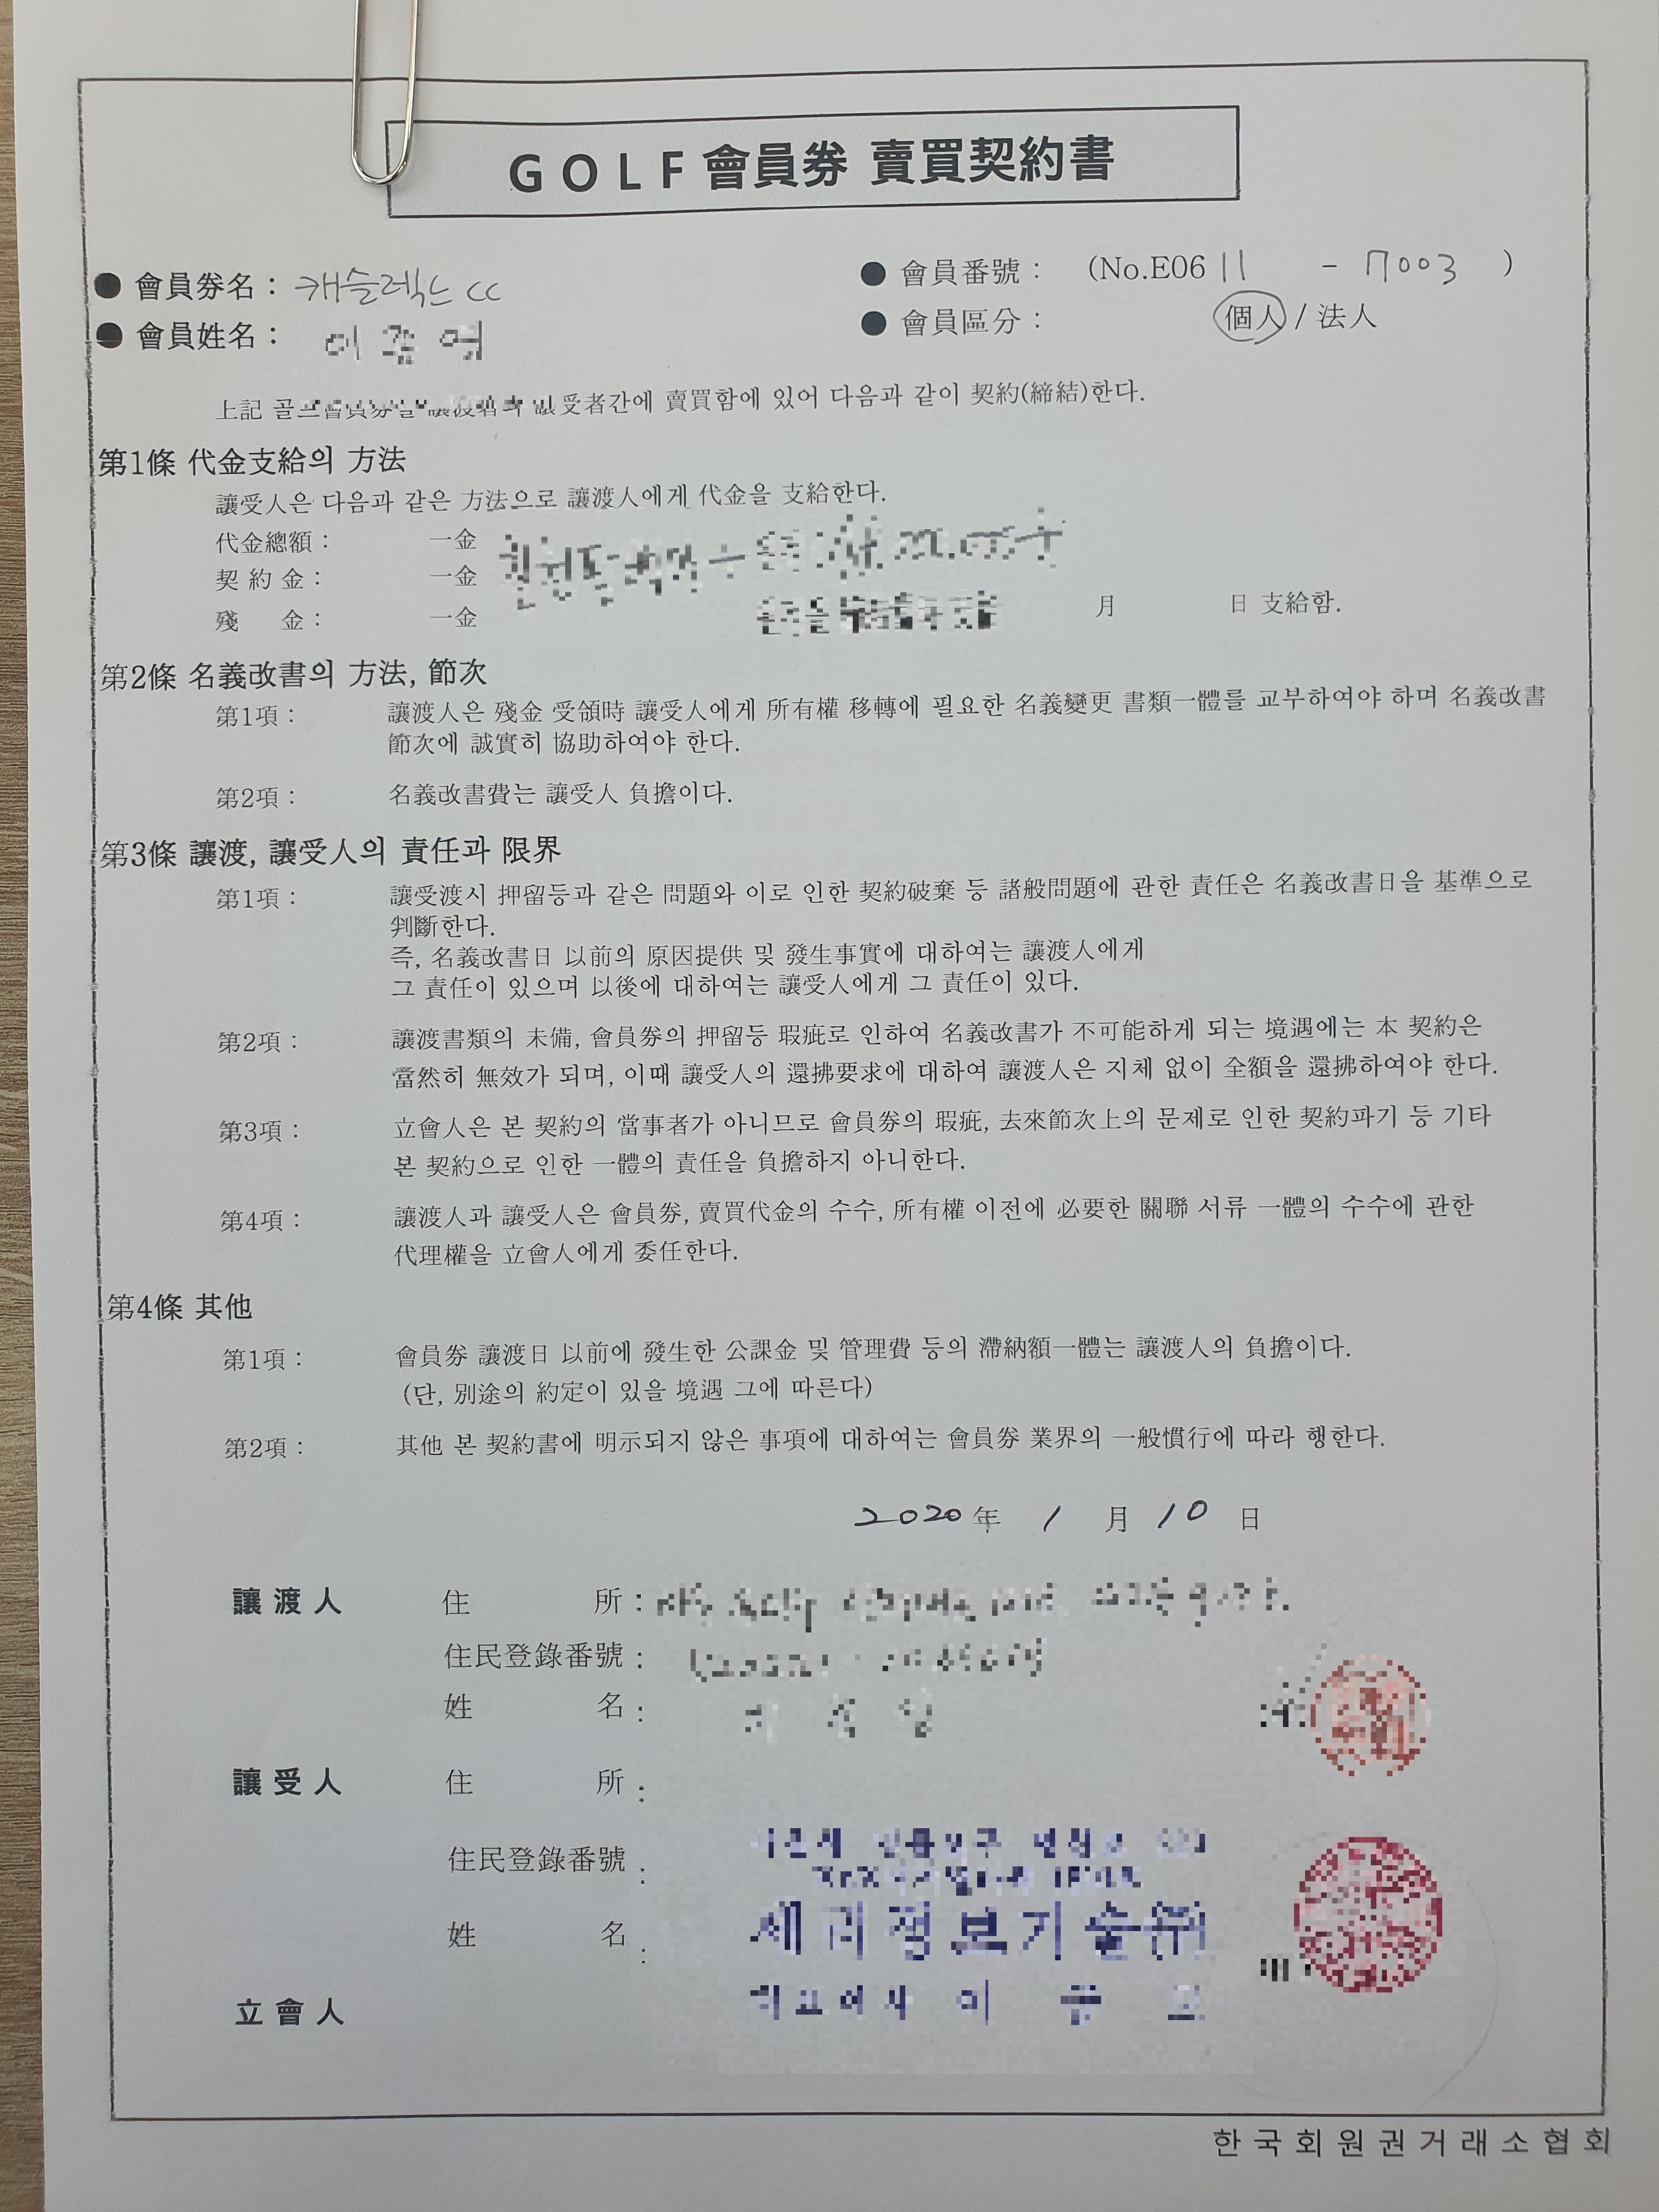 GOLF 會員券 賣買契約書
● 會員券名 : 캐슬렉스 CC
● 會員番號 : (No.E06 11 - 7003 )
● 會員姓名 :
● 會員區分 : 個人 / 法人
上記 골프會員券을 讓渡者와 讓受者간에 賣買함에 있어 다음과 같이 契約(締結)한다.
第1條 代金支給의 方法
讓受人은 다음과 같은 方法으로 讓渡人에게 代金을 支給한다.
代金總額 : 一金
契 約 金 : 一金
殘 金 : 一金 月 日 支給함.
第2條 名義改書의 方法, 節次
第1項 : 讓渡人은 殘金 受領時 讓受人에게 所有權 移轉에 필요한 名義變更 書類一體를 교부하여야 하며 名義改書
節次에 誠實히 協助하여야 한다.
第2項 : 名義改書費는 讓受人 負擔이다.
第3條 讓渡, 讓受人의 責任과 限界
第1項 : 讓受渡시 押留등과 같은 問題와 이로 인한 契約破棄 등 諸般問題에 관한 責任은 名義改書日을 基準으로
判斷한다.
즉, 名義改書日 以前의 原因提供 및 發生事實에 대하여는 讓渡人에게
그 責任이 있으며 以後에 대하여는 讓受人에게 그 責任이 있다.
第2項 : 讓渡書類의 未備, 會員券의 押留등 瑕疵로 인하여 名義改書가 不可能하게 되는 境遇에는 本 契約은
當然히 無效가 되며, 이때 讓受人의 還拂要求에 대하여 讓渡人은 지체 없이 全額을 還拂하여야 한다.
第3項 : 立會人은 본 契約의 當事者가 아니므로 會員券의 瑕疵, 去來節次上의 문제로 인한 契約파기 등 기타
본 契約으로 인한 一體의 責任을 負擔하지 아니한다.
第4項 : 讓渡人과 讓受人은 會員券, 賣買代金의 수수, 所有權 이전에 必要한 關聯 서류 一體의 수수에 관한
代理權을 立會人에게 委任한다.
第4條 其他
第1項 : 會員券 讓渡日 以前에 發生한 公課金 및 管理費 등의 滯納額一體는 讓渡人의 負擔이다.
(단, 別途의 約定이 있을 境遇 그에 따른다)
第2項 : 其他 본 契約書에 明示되지 않은 事項에 대하여는 會員券 業界의 一般慣行에 따라 행한다.
2020 年 1 月 10 日
讓渡人 住 所 :
住民登錄番號 :
姓 名 :
讓受人 住 所 :
住民登錄番號 :
姓 名 :
立會人
한국회원권거래소협회